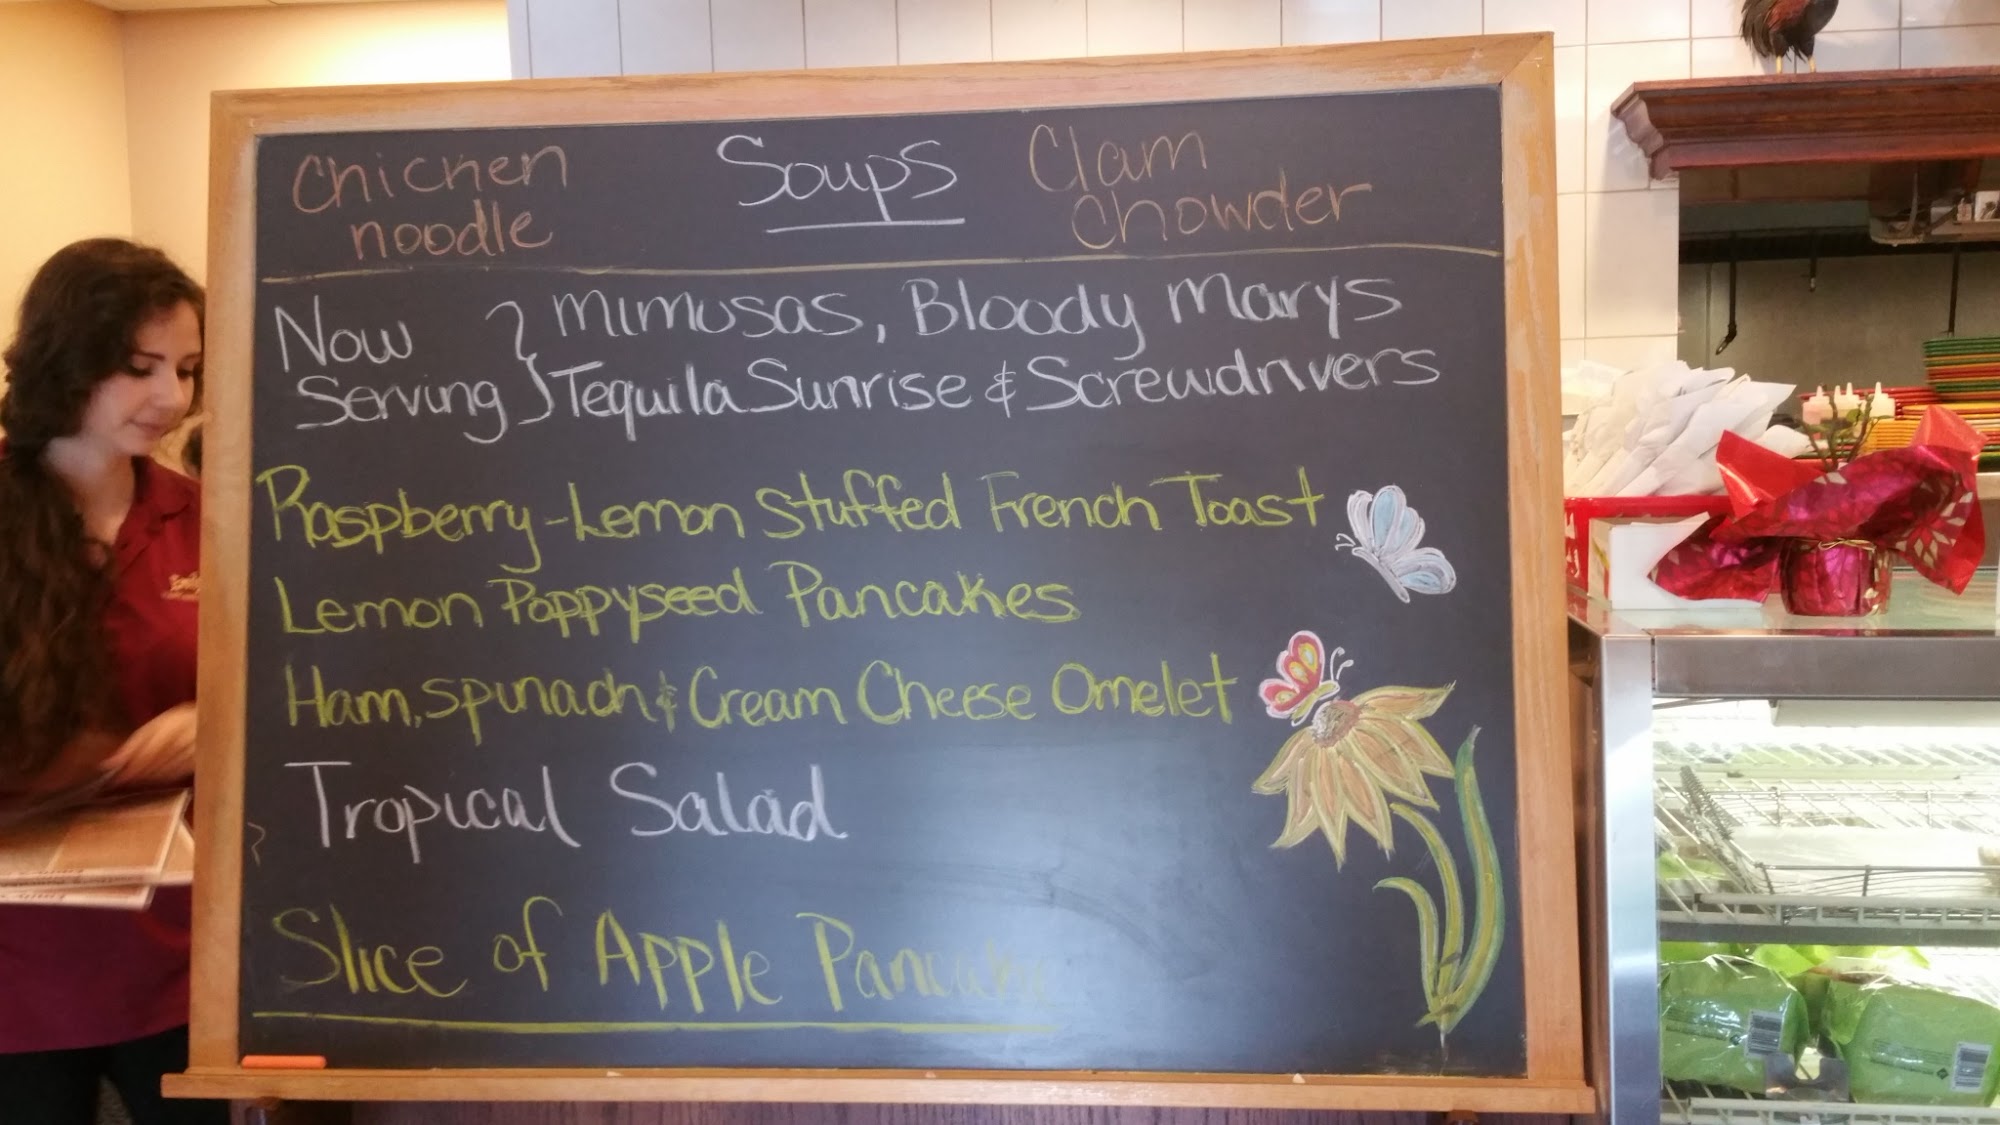 Chicken noodle
Soups
Clam Chowder
Now Serving
Mimusas, Bloody Marys
Tequila Sunrise & Screwdrivers
Raspberry-Lemon Stuffed French Toast
Lemon Poppyseed Pancakes
Ham, Spinach & Cream Cheese Omelet
Tropical Salad
Slice of Apple Pancake